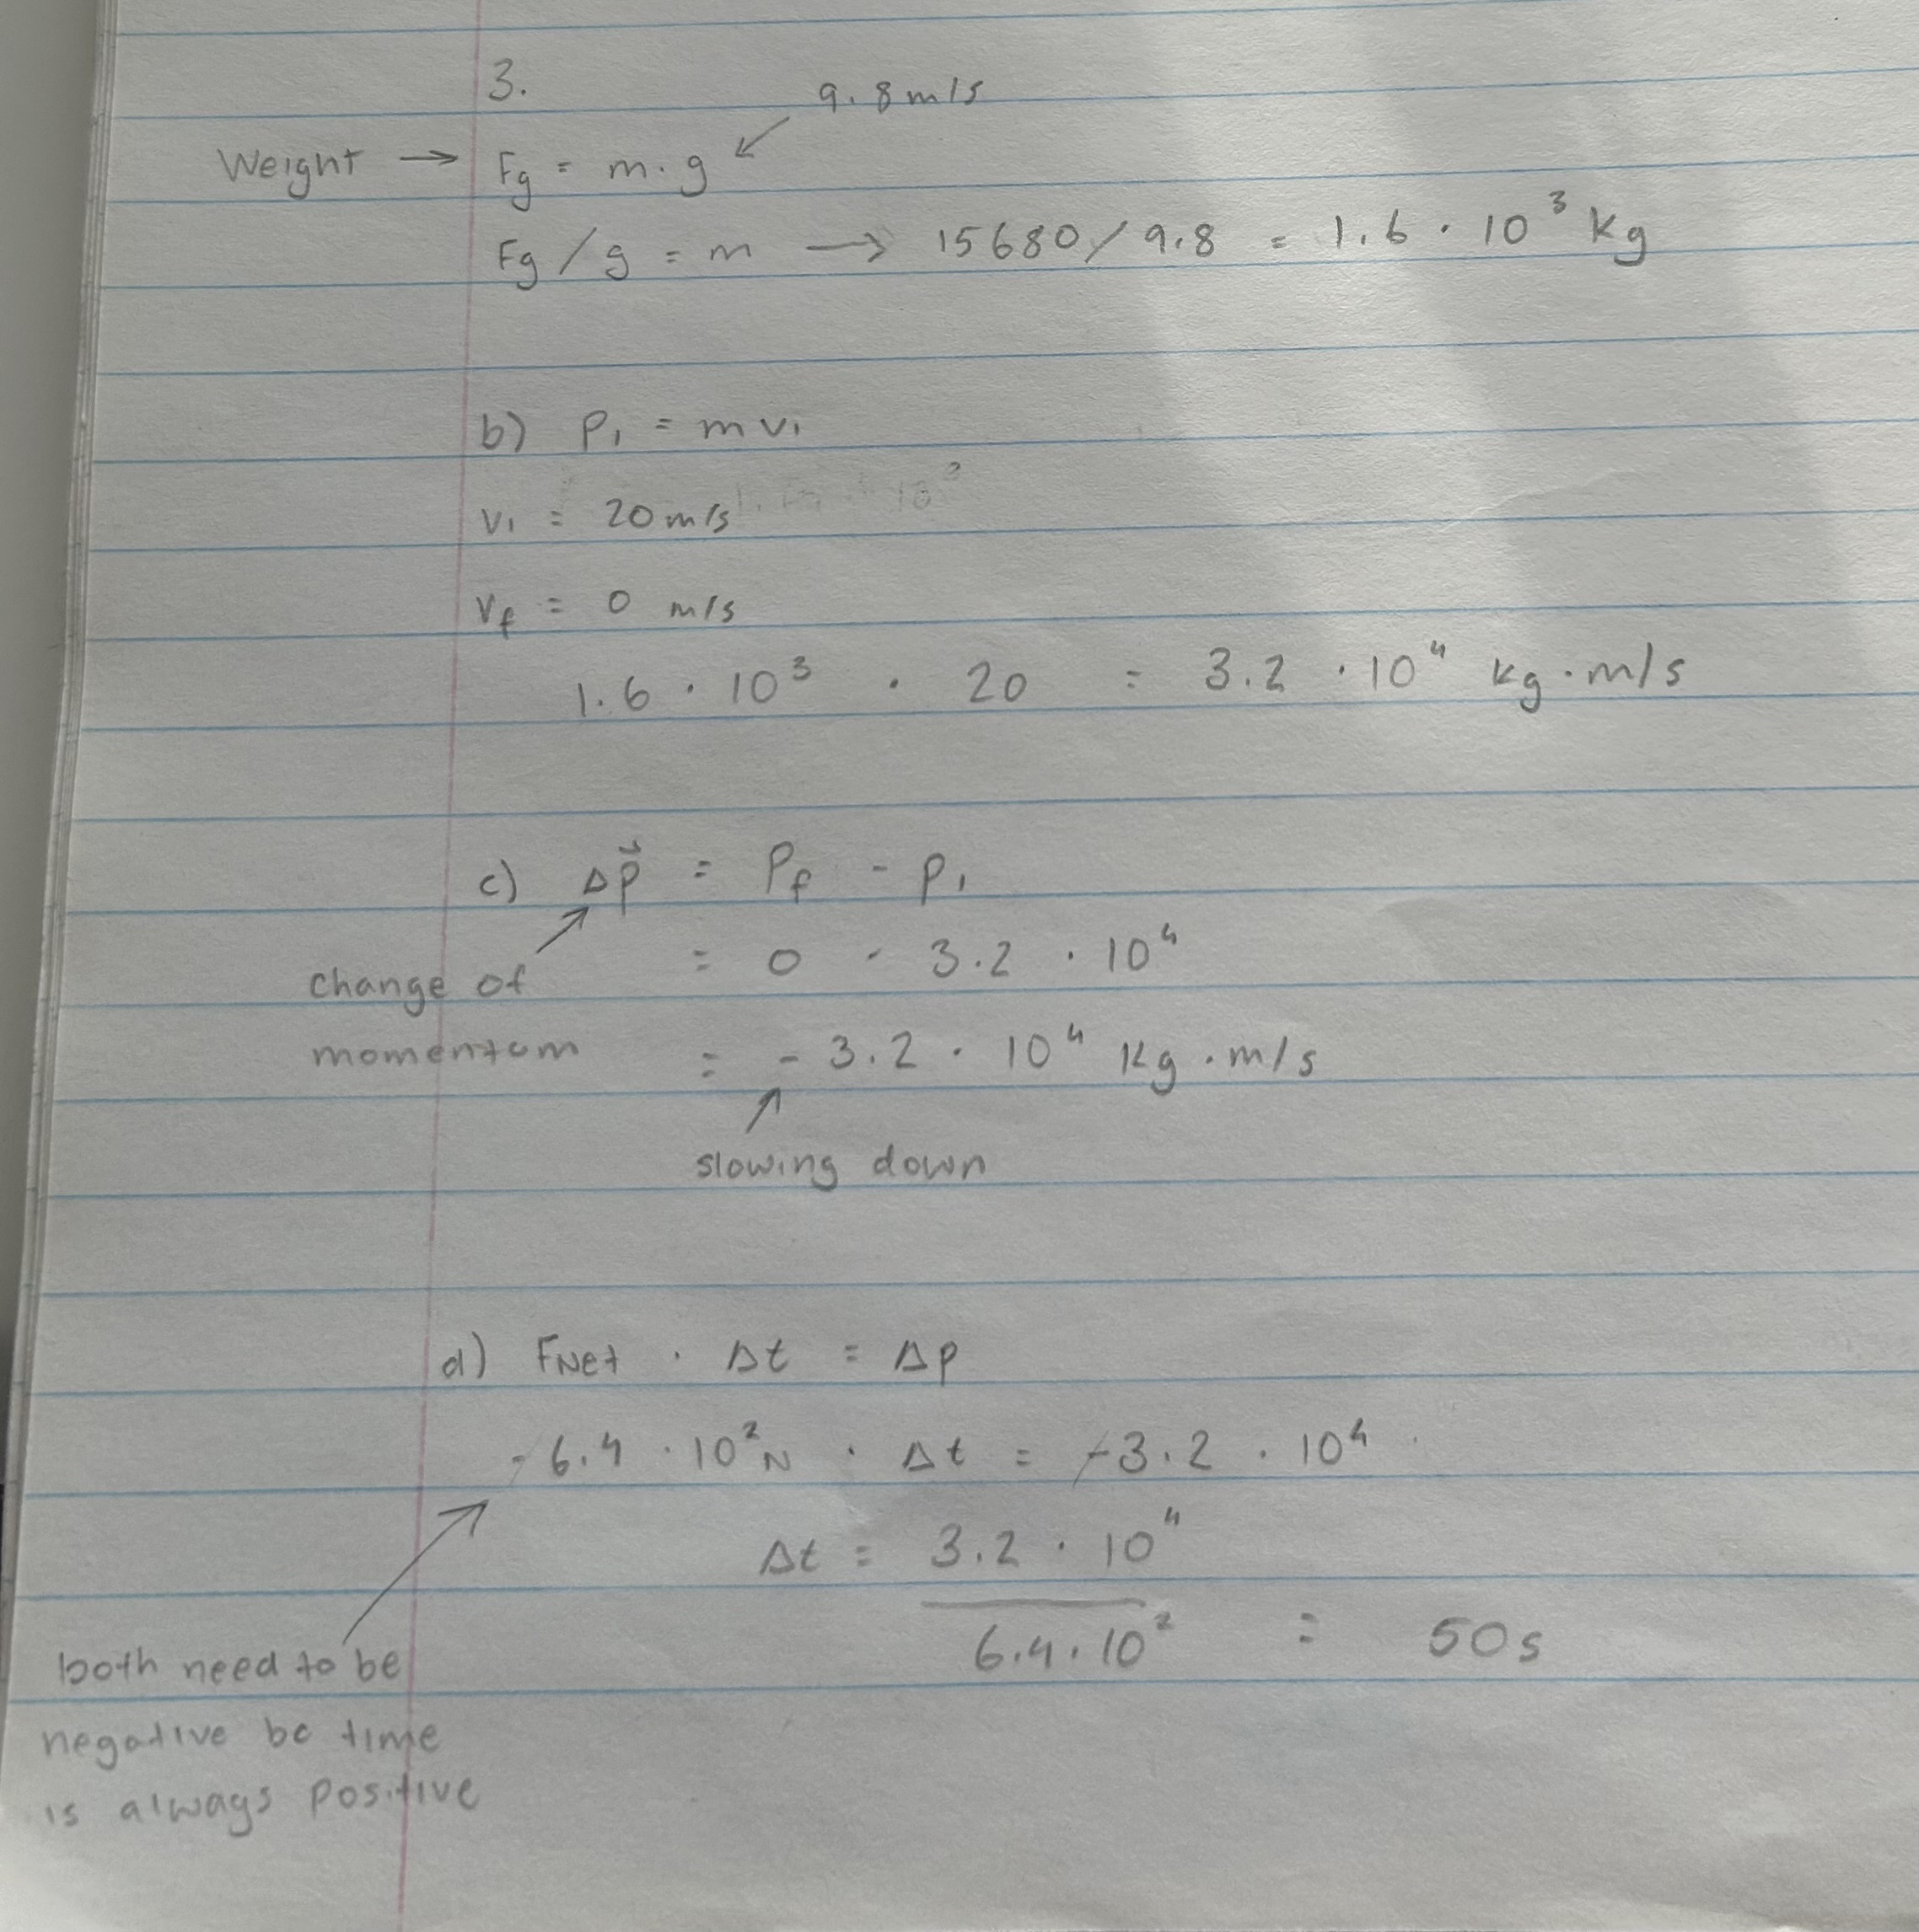 3.
9.8 m/s
Weight → Fg = m · g
Fg / g = m → 15680 / 9.8 = 1.6 · 10³ kg
b) P₁ = m v₁
v₁ = 20 m/s
v_f = 0 m/s
1.6 · 10³ · 20 = 3.2 · 10⁴ kg · m/s
c) Δp⃗ = P_f - P₁
= 0 - 3.2 · 10⁴
change of
momentum
= - 3.2 · 10⁴ kg · m/s
slowing down
d) FNet · Δt = Δp
- 6.4 · 10² N · Δt = -3.2 · 10⁴
Δt = 3.2 · 10⁴
6.4 · 10² = 50 s
both need to be
negative bc time
is always positive